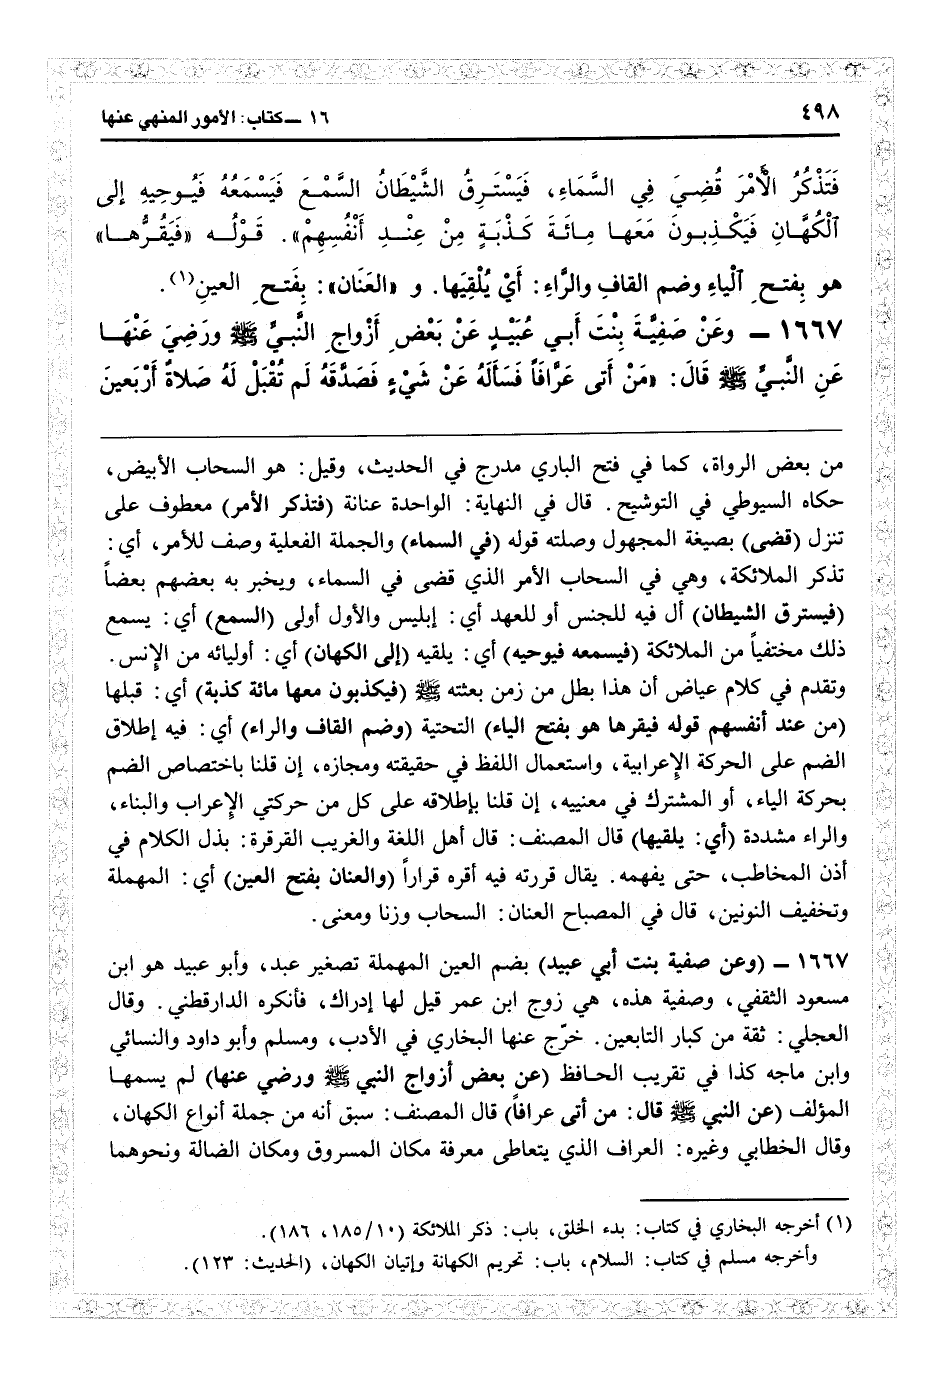 ٤٩٨
١٦ ــ كتاب: الأمور المنهي عنها
فَتَذْكُرُ الْأَمْرَ قُضِيَ فِي السَّمَاءِ، فَيَسْتَرِقُ الشَّيْطَانُ السَّمْعَ فَيَسْمَعُهُ فَيُوحِيهِ إلى
الْكُهَّانِ فَيَكْذِبُونَ مَعَهَا مِائَةَ كَذْبَةٍ مِنْ عِنْدِ أَنْفُسِهِمْ». قَوْلُه «فَيَقُرُّها»
هو بِفتحِ اْلْياءِ وضم القاف والرَّاءِ: أَيْ يُلْقِيَها. و «العَنَان»: بِفَتحِ العينِ(١).
١٦٦٧ ــ وعَنْ صَفِيَّةَ بِنْتَ أَبي عُبَيْدٍ عَنْ بَعْضِ أَزْواجِ النَّبيِّ ﷺ ورَضِيَ عَنْهَا
عَنِ النَّبيِّ ﷺ قَالَ: «مَنْ أَتى عَرَّافَاً فَسَأَلَهُ عَنْ شَيْءٍ فَصَدَّقَهُ لَم تُقْبَلْ لَهُ صَلاةٌ أَرْبَعينَ
من بعض الرواة، كما في فتح الباري مدرج في الحديث، وقيل: هو السحاب الأبيض،
حكاه السيوطي في التوشيح. قال في النهاية: الواحدة عنانة (فتذكر الأمر) معطوف على
تنزل (قضى) بصيغة المجهول وصلته قوله (في السماء) والجملة الفعلية وصف للأمر، أي:
تذكر الملائكة، وهي في السحاب الأمر الذي قضى في السماء، ويخبر به بعضهم بعضاً
(فيسترق الشيطان) أل فيه للجنس أو للعهد أي: إبليس والأول أولى (السمع) أي: يسمع
ذلك مختفياً من الملائكة (فيسمعه فيوحيه) أي: يلقيه (إلى الكهان) أي: أوليائه من الإِنس.
وتقدم في كلام عياض أن هذا بطل من زمن بعثته ﷺ (فيكذبون معها مائة كذبة) أي: قبلها
(من عند أنفسهم قوله فيقرها هو بفتح الياء) التحتية (وضم القاف والراء) أي: فيه إطلاق
الضم على الحركة الإِعرابية، واستعمال اللفظ في حقيقته ومجازه، إن قلنا باختصاص الضم
بحركة الياء، أو المشترك في معنييه، إن قلنا بإطلاقه على كل من حركتي الإِعراب والبناء،
والراء مشددة (أي: يلقيها) قال المصنف: قال أهل اللغة والغريب القرقرة: بذل الكلام في
أذن المخاطب، حتى يفهمه. يقال قررته فيه أقره قراراً (والعنان بفتح العين) أي: المهملة
وتخفيف النونين، قال في المصباح العنان: السحاب وزنا ومعنى.
١٦٦٧ ــ (وعن صفية بنت أبي عبيد) بضم العين المهملة تصغير عبد، وأبو عبيد هو ابن
مسعود الثقفي، وصفية هذه، هي زوج ابن عمر قيل لها إدراك، فأنكره الدارقطني. وقال
العجلي: ثقة من كبار التابعين. خرّج عنها البخاري في الأدب، ومسلم وأبو داود والنسائي
وابن ماجه كذا في تقريب الحافظ (عن بعض أزواج النبي ﷺ ورضي عنها) لم يسمها
المؤلف (عن النبي ﷺ قال: من أتى عرافاً) قال المصنف: سبق أنه من جملة أنواع الكهان،
وقال الخطابي وغيره: العراف الذي يتعاطى معرفة مكان المسروق ومكان الضالة ونحوهما
(١) أخرجه البخاري في كتاب: بدء الخلق، باب: ذكر الملائكة (١٠/ ١٨٥، ١٨٦).
وأخرجه مسلم في كتاب: السلام، باب: تحريم الكهانة وإتيان الكهان، (الحديث: ١٢٣).